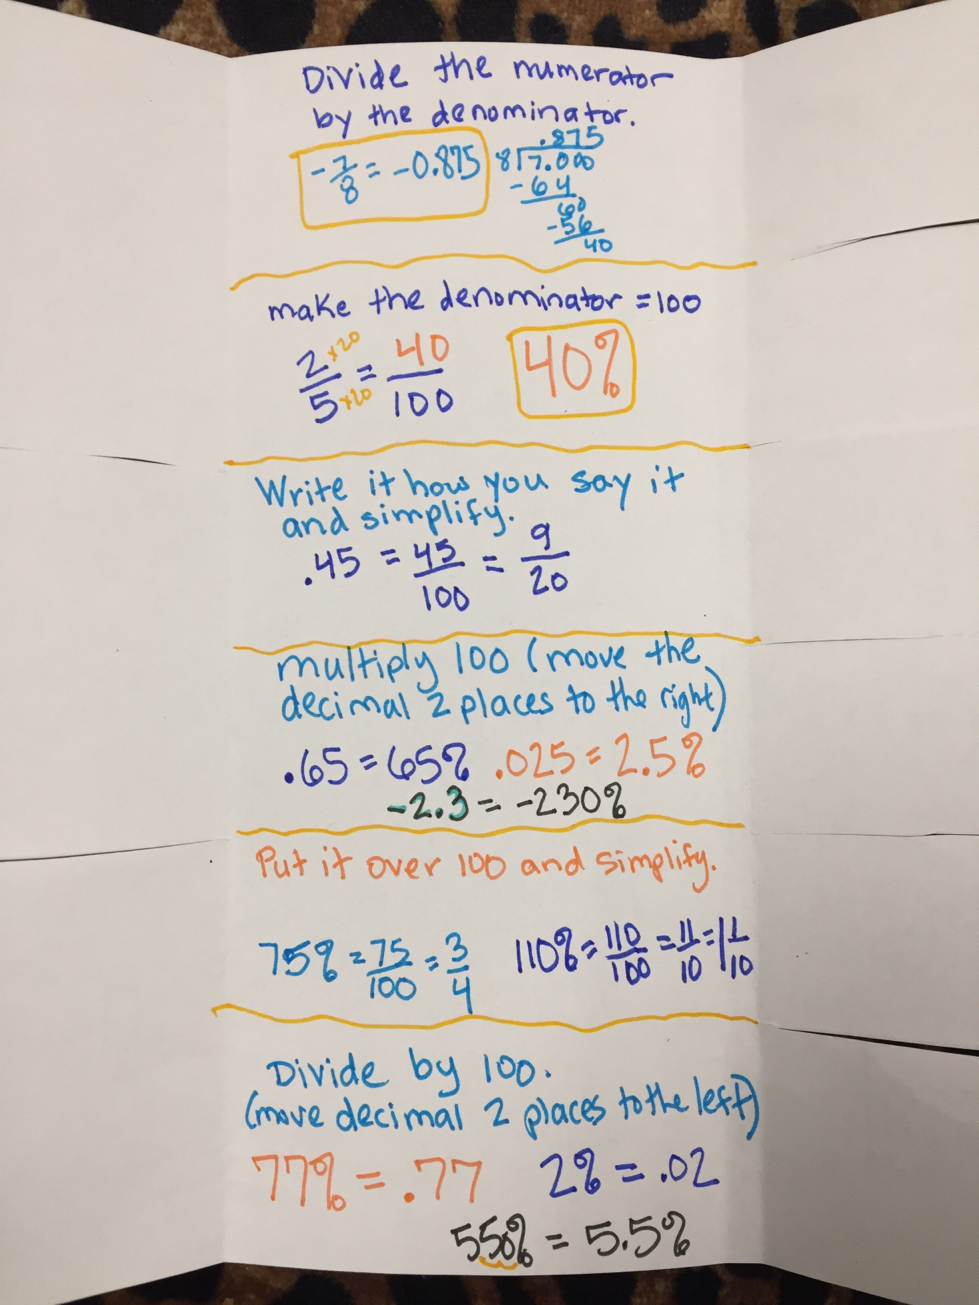 Divide the numerator
by the denominator.
-7/8 = -0.875
.875
8 7.000
-64
60
-56
40
make the denominator = 100
2 x20 / 5 x20 = 40/100
40%
Write it how you say it
and simplify.
.45 = 45/100 = 9/20
multiply 100 (move the
decimal 2 places to the right)
.65 = 65% .025 = 2.5%
-2.3 = -230%
Put it over 100 and simplify.
75% = 75/100 = 3/4 110% = 110/100 = 11/10 = 1 1/10
Divide by 100.
(move decimal 2 places to the left)
77% = .77 2% = .02
550% = 5.5%